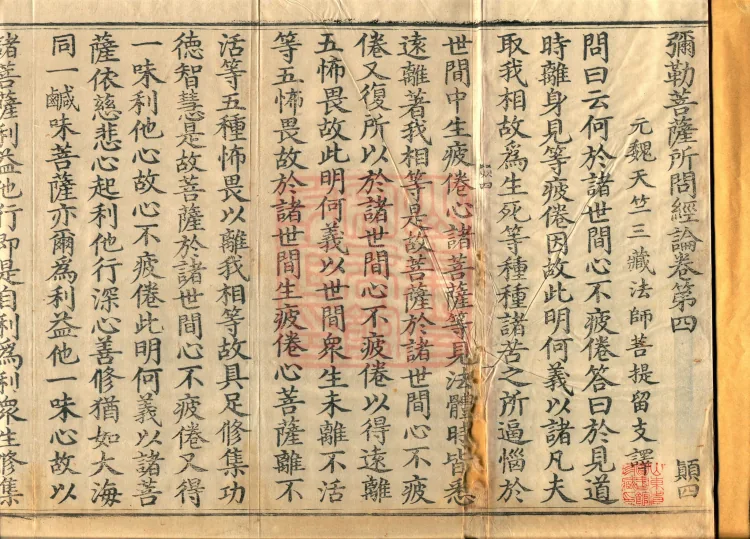 彌勒菩薩所問經論卷第四 顛四
元魏天竺三藏法師菩提留支譯
問曰云何於諸世間心不疲倦答曰於見道
時離身見等疲倦因故此明何義以諸凡夫
取我相故爲生死等種種諸苦之所逼惱於
世間中生疲倦心諸菩薩等見法體時皆悉
遠離著我相等是故菩薩於諸世間心不疲
倦又復所以於諸世間心不疲倦以得遠離
五怖畏故此明何義以世間衆生未離不活
等五怖畏故於諸世間生疲倦心菩薩離不
活等五種怖畏以離我相等故具足修集功
德智慧是故菩薩於諸世間心不疲倦又得
一味利他心故心不疲倦此明何義以諸菩
薩依慈悲心起利他行深心善修猶如大海
同一鹹味菩薩亦爾爲利益他一味心故以
諸菩薩利益他行即是自利爲利衆生修集